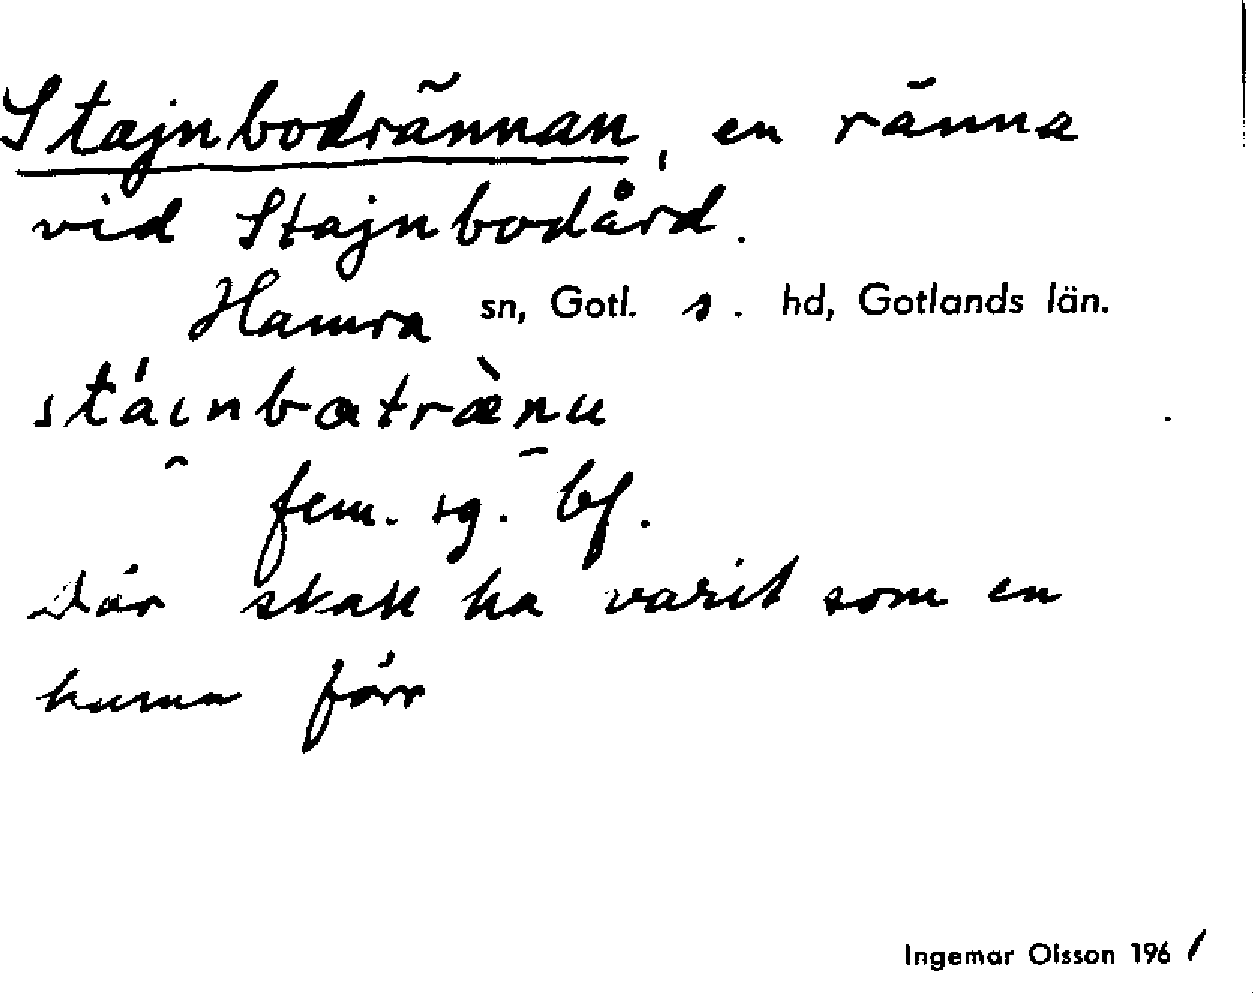 Stajnbodrännan, en ränna
vid Stajnbodård.
Hamra sn, Gotl. s. hd, Gotlands län.
stáinbatræ̀nu
fem. sg. bf.
Där skall ha varit som en
hamn förr
Ingemar Olsson 1961